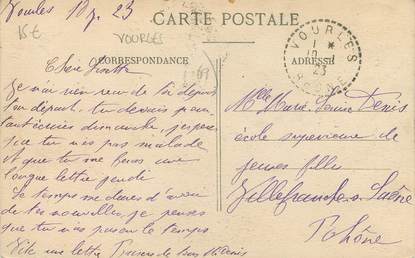 Vourles 10 7. 23
15€
VOURLES
CARTE POSTALE
CORRESPONDANCE
ADRESSE
VOURLES
RHONE
1 *
10
23
Chère
Je n'ai rien reçu de toi depuis
ton départ, tu devais pour
tant écrire dimanche, j'espère
que tu n'es pas malade
et que tu me feras une
longue lettre jeudi
Le temps me dure d'avoir
de tes nouvelles, je pense
que tu vas passer le temps
Vite une lettre de
Melle Marie Louise Denis
école supérieure de
jeunes filles
Villefranche s. Saône
Rhône